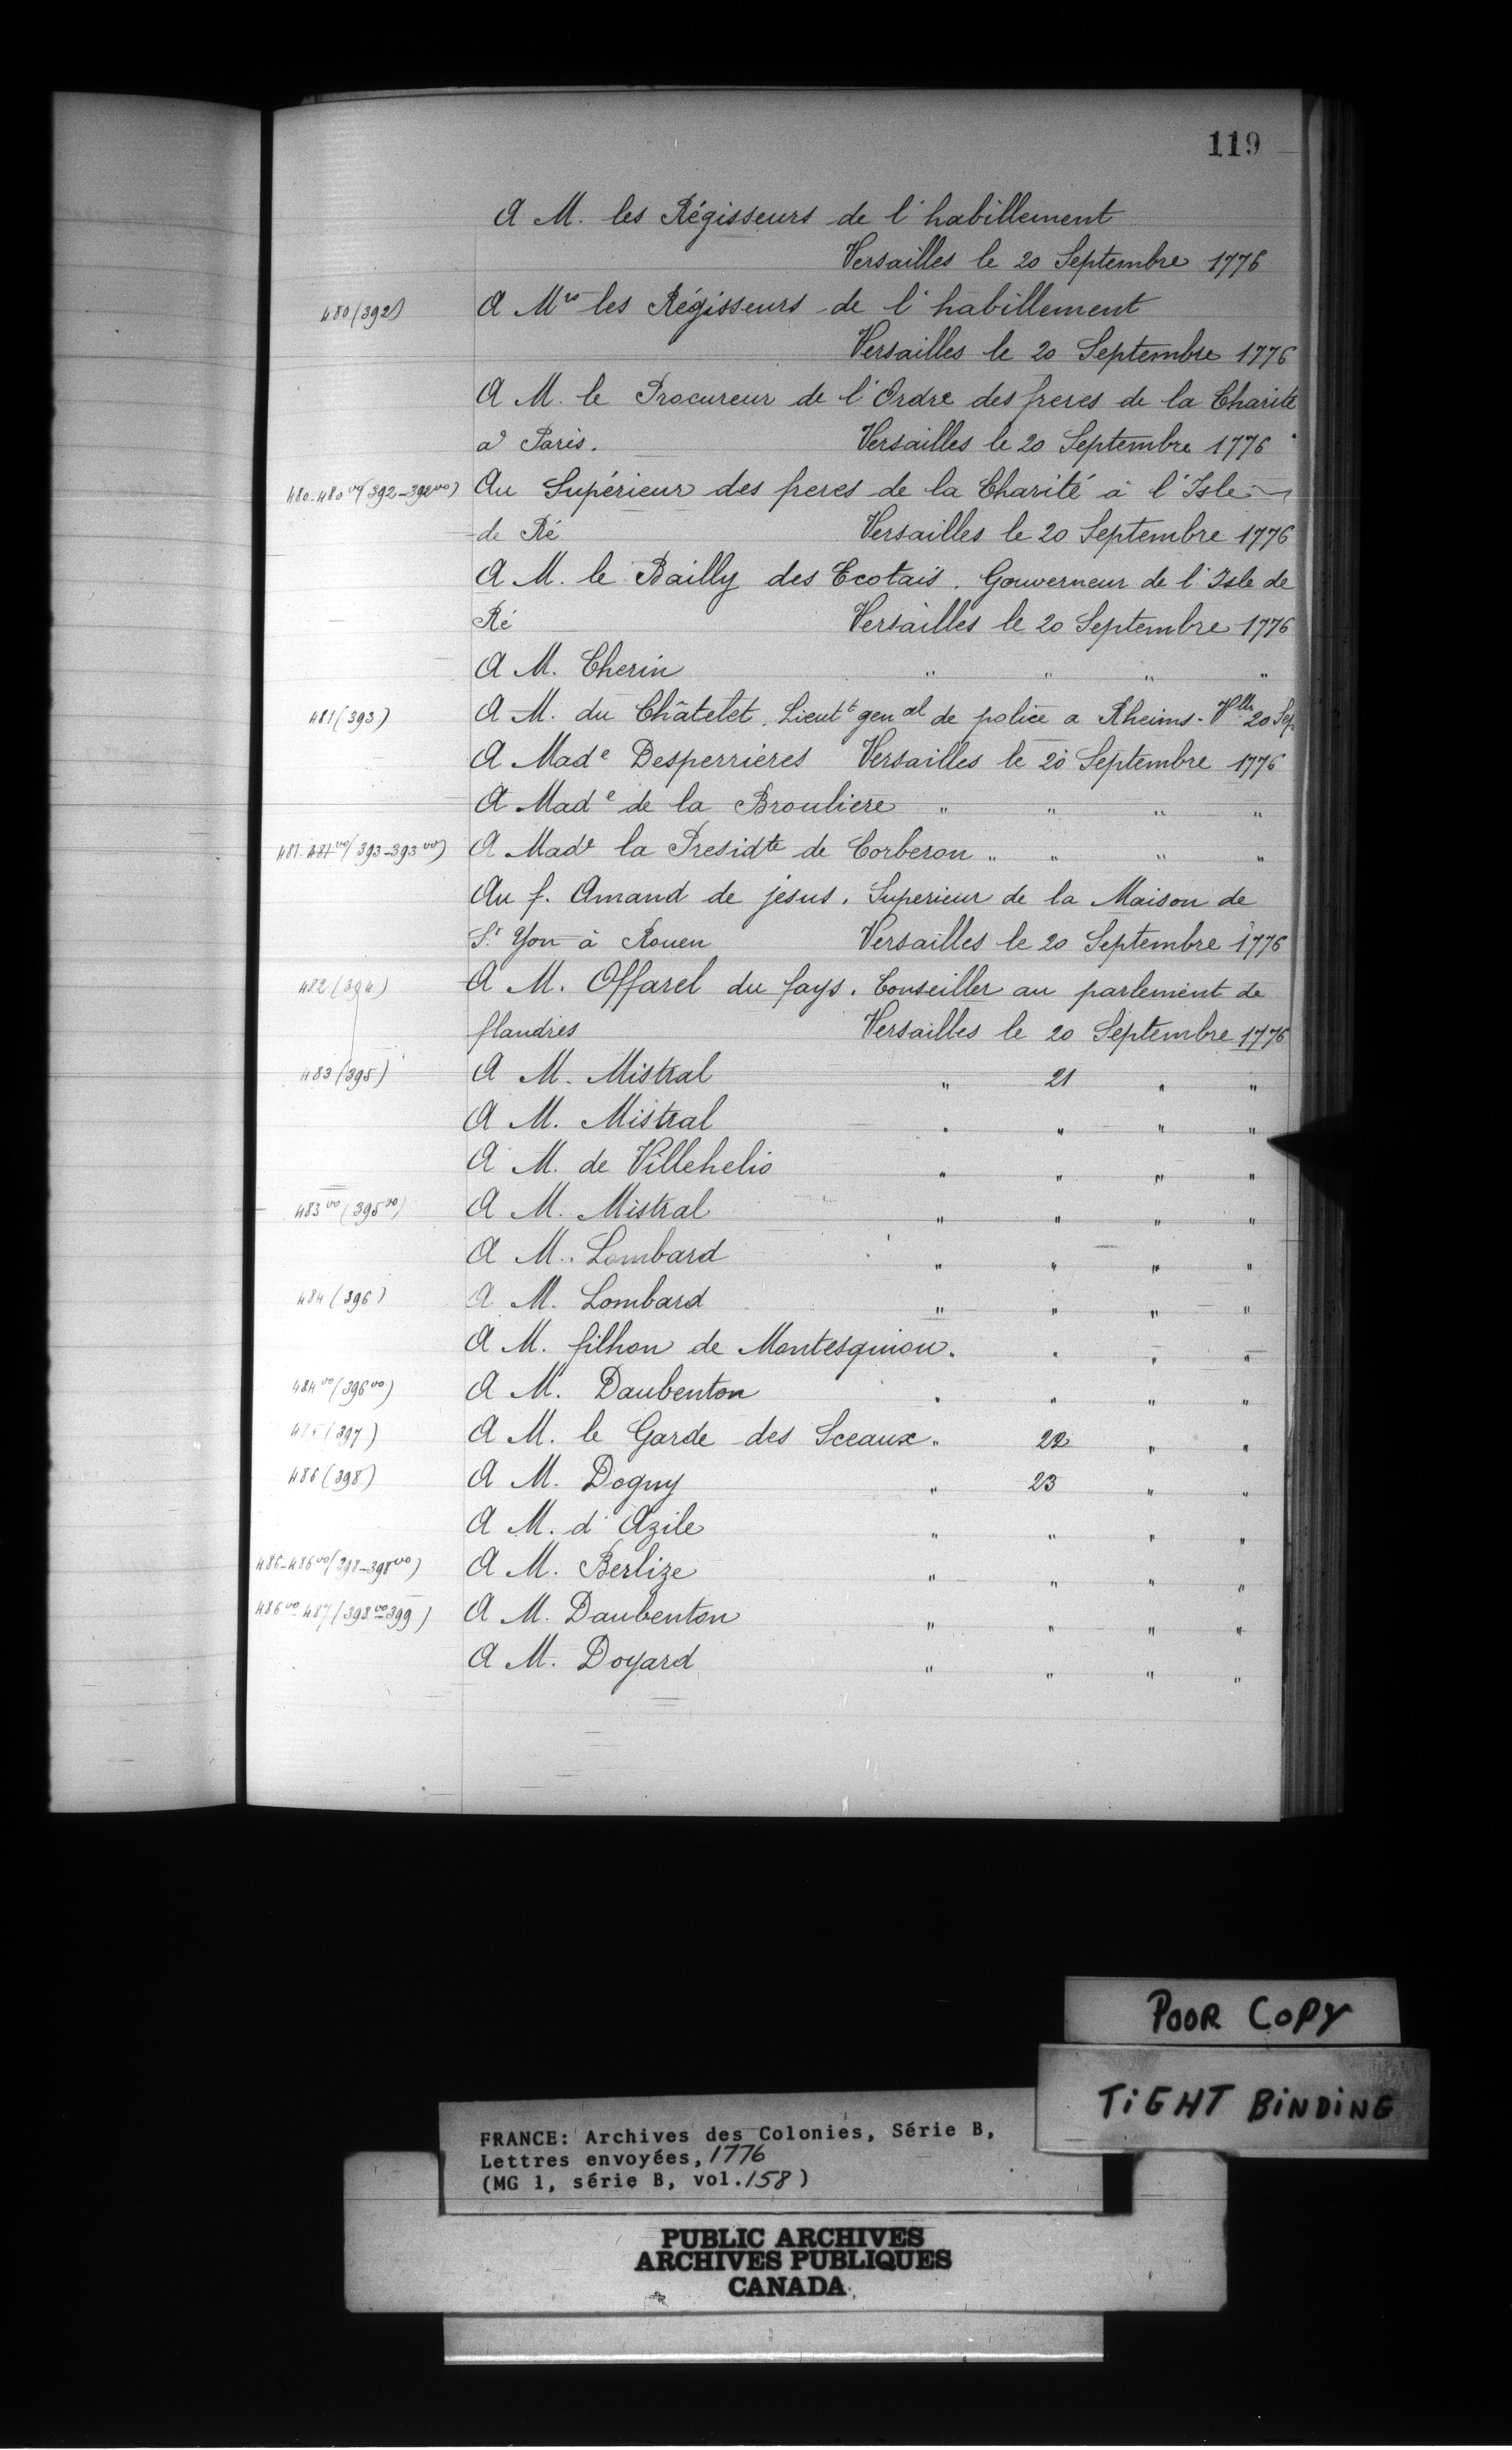 119
A M. les Régisseurs de l'habillement
Versailles le 20 Septembre 1776
480 (392) A Mrs les Régisseurs de l'habillement
Versailles le 20 Septembre 1776
A M. le Procureur de l'Ordre des freres de la Charité
à Paris. Versailles le 20 Septembre 1776
480-480vo (392-392vo) Au Supérieur des freres de la Charité à l'Isle
de Ré Versailles le 20 Septembre 1776
A M. le Bailly des Ecotais. Gouverneur de l'Isle de
Ré Versailles le 20 Septembre 1776
A M. Cherin " " " "
481 (393) A M. du Châtelet. Lieutt genal de police a Rheims - Vlls 20 Sep
A Made Desperrieres Versailles le 20 Septembre 1776
A Made de la Brouliere " " " "
481-481vo (393-393vo) A Made la Presidte de Corberon " " " "
Au f. Amand de jésus. Superieur de la Maison de
St Yon à Rouen Versailles le 20 Septembre 1776
482 (394) A M. Offarel du fays. Conseiller au parlement de
flandres Versailles le 20 Septembre 1776
483 (395) A M. Mistral " 21 " "
A M. Mistral " " " "
A M. de Villehelio " " " "
483vo (395vo) A M. Mistral " " " "
A M. Lombard " " " "
484 (396) A M. Lombard " " " "
A M. filhon de Montesquiou. " " "
484vo (396vo) A M. Daubenton " " " "
485 (397) A M. le Garde des Sceaux " 22 " "
486 (398) A M. Dogny " 23 " "
A M. d'Azile " " " "
486-486vo (398-398vo) A M. Berlize " " " "
486vo-487 (398vo-399) A M. Daubenton " " " "
A M. Doyard " " " "
POOR COPY
TIGHT BINDING
FRANCE: Archives des Colonies, Série B,
Lettres envoyées, 1776
(MG 1, série B, vol. 158)
PUBLIC ARCHIVES
ARCHIVES PUBLIQUES
CANADA